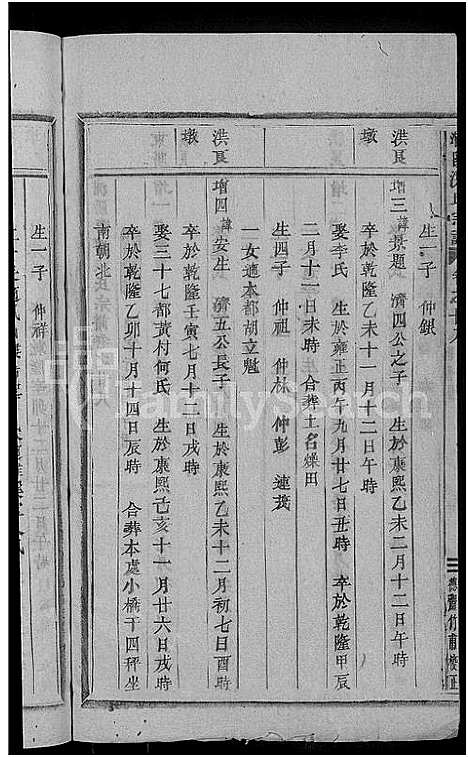 生一子 仲銀
洪良墩 增三 諱景題 濟四公之子 生於康熙乙未二月十二日午時
卒於乾隆乙未十一月十二日午時
娶李氏 生於雍正丙午九月廿七日丑時 卒於乾隆甲辰
二月十二日未時 合葬土名爍田
生四子 仲祖 仲林 仲彭 連茂
一女適本都胡立魁
洪良墩 增四 諱安生 濟五公長子 生於康熙乙未十二月初七日酉時
卒於乾隆壬寅七月十二日戌時
娶三十七都黄村何氏 生於康熙己亥十一月廿六日戌時
卒於乾隆乙卯十月十四日辰時 合葬本處小橋干四秤坐
南朝北
生一子 仲祥
FamilySearch